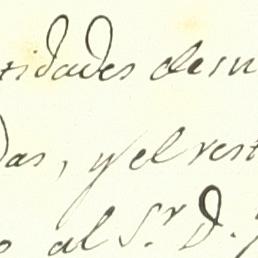 tidades de su
das, y el rest
al Sr. D.